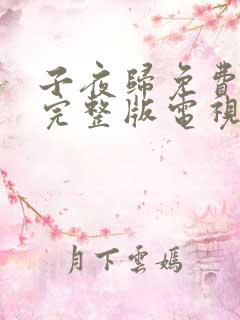 子夜歸免費
完整版電視
月下雲嫣